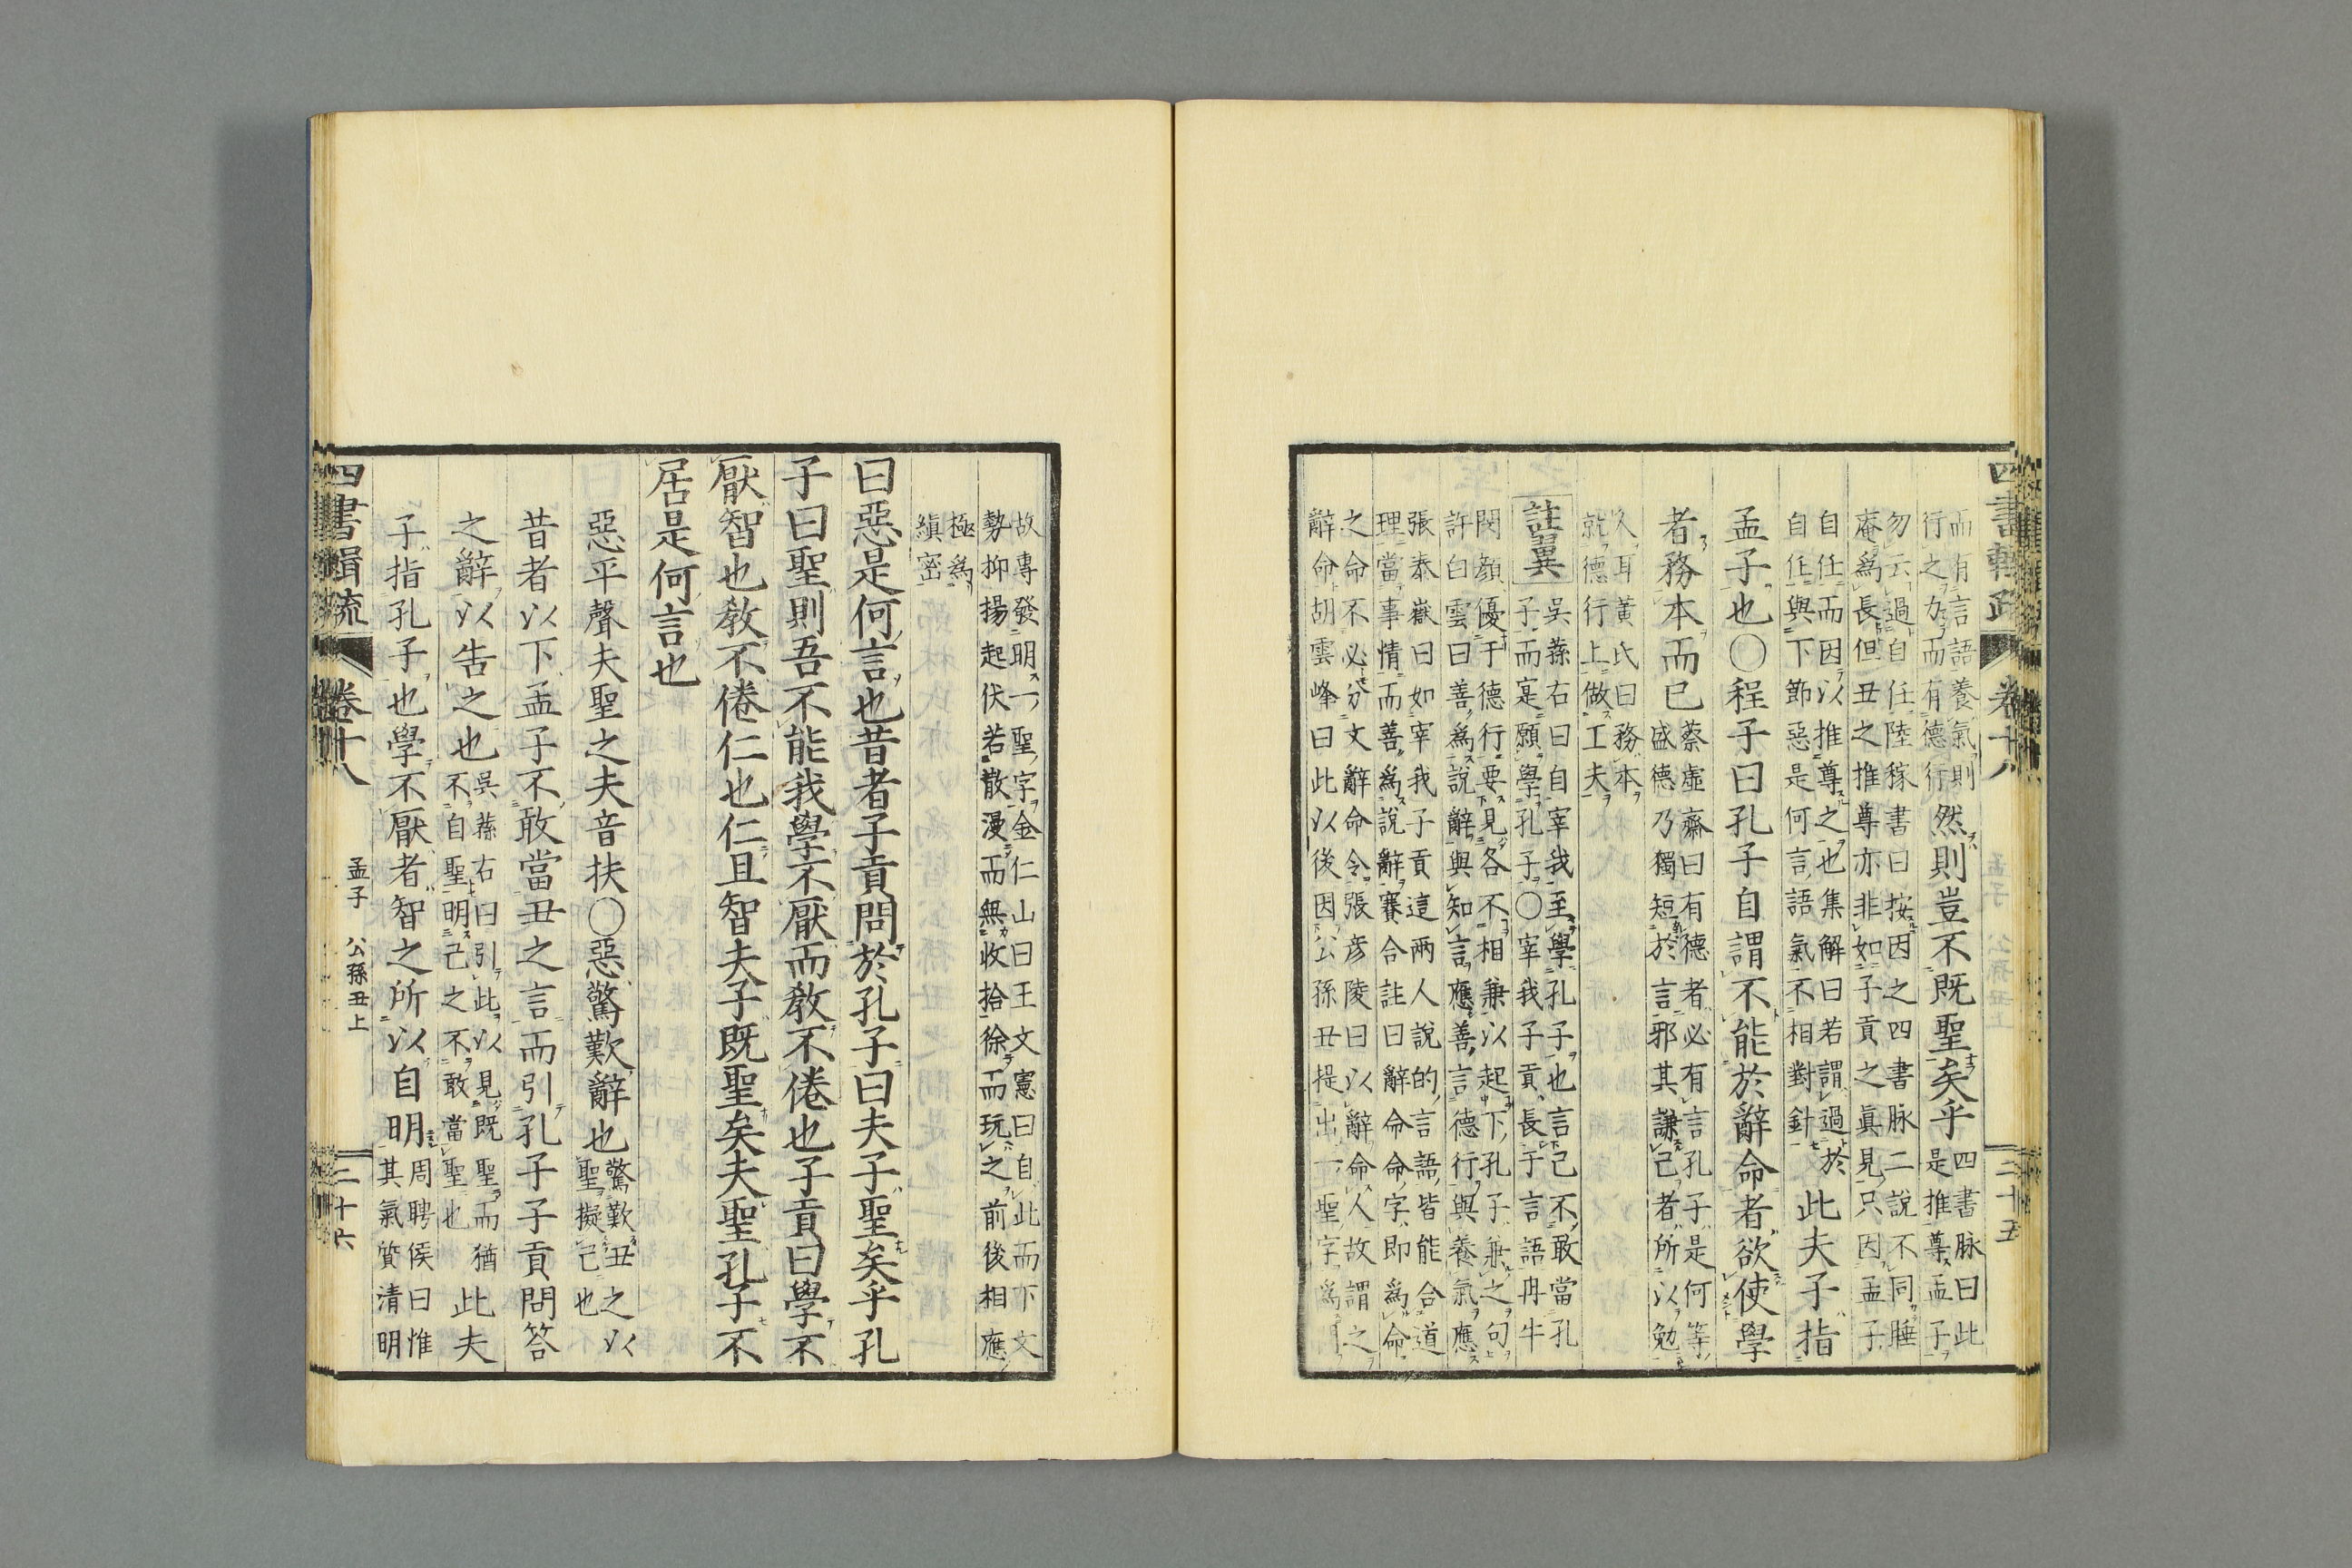 而有言語養氣則
行之力而有德行
然則豈不既聖矣乎
四書脉曰此
是推尊孟子
勿云過自任陸稼書曰按因之四書脉二說不同睡
菴為長但丑之推尊亦非如子貢之眞見只因孟子
自任而因以推尊之也集解曰若謂過於
自任與下節惡是何言語氣不相對針
此夫子指
孟子也〇程子曰孔子自謂不能於辭命者欲使學
者務本而已
蔡虛齋曰有德者必有言孔子是何等
盛德乃獨短於言邪其謙己者所以勉
人耳黃氏曰務本
就德行上做工夫
註翼
吳蓀右曰自宰我至學孔子也言己不敢當孔
子而寔願學孔子〇宰我子貢長于言語冉牛
閔顏優于德行要見各不相兼以起下孔子兼之句
許白雲曰善為說辭與知言應善言德行與養氣應
張泰嶽曰如宰我子貢這兩人說的言語皆能合道
理當事情而善為說辭賽合註曰辭命命字即為命
之命不必分文辭命令張彥陵曰以辭命人故謂之
辭命胡雲峰曰此以後因公孫丑提出一聖字為
四書輯疏
卷十八
孟子 公孫丑上
二十五
故專發明一聖字金仁山曰王文憲曰自此而下文
勢抑揚起伏若散漫而無收拾徐而玩之前後相應
極為
縝密
曰惡是何言也昔者子貢問於孔子曰夫子聖矣乎孔
子曰聖則吾不能我學不厭而教不倦也子貢曰學不
厭智也教不倦仁也仁且智夫子既聖矣夫聖孔子不
居是何言也
惡平聲夫聖之夫音扶〇惡驚歎辭也
驚歎丑之以
聖擬己也
昔者以下孟子不敢當丑之言而引孔子子貢問答
之辭以告之也
吳蓀右曰引此以見既聖而猶
不自聖明己之不敢當聖也
此夫
子指孔子也學不厭者智之所以自明
周聘侯曰惟
其氣質清明
四書輯疏
卷十八
孟子 公孫丑上
二十六